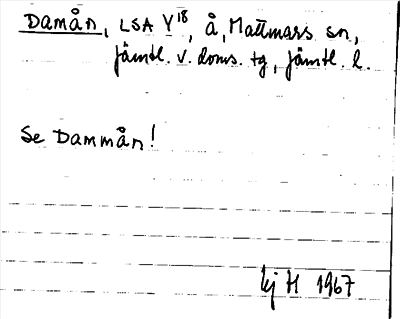 Damån, LSA Y18, å, Mattmars sn,
Jämtl. v. doms. tg, Jämtl. l.
Se Dammån!
H 1967